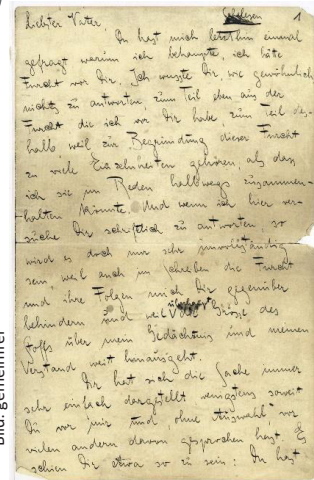 Schelesen
1
Liebster Vater,
Du hast mich letzthin einmal
gefragt warum ich behaupte, ich hätte
Furcht vor Dir. Ich wusste Dir, wie gewöhnlich
nichts zu antworten, zum Teil eben aus der
Furcht die ich vor Dir habe, zum Teil des-
halb weil zur Begründung dieser Furcht
zu viele Einzelnheiten gehören, als dass
ich sie im Reden halbwegs zusammen-
halten könnte. Und wenn ich hier ver-
suche Dir schriftlich zu antworten, so
wird es doch nur sehr unvollständig
sein, weil auch im Schreiben die Furcht
und ihre Folgen mich Dir gegenüber
behindern und weil die Grösse des
Stoffs über mein Gedächtnis und meinen
Verstand weit hinausgeht.
Dir hat sich die Sache immer
sehr einfach dargestellt, wenigstens soweit
Du vor mir und, ohne Auswahl, vor
vielen andern davon gesprochen hast. Es
schien Dir etwa so zu sein: Du hast
Bild: gemeinfrei